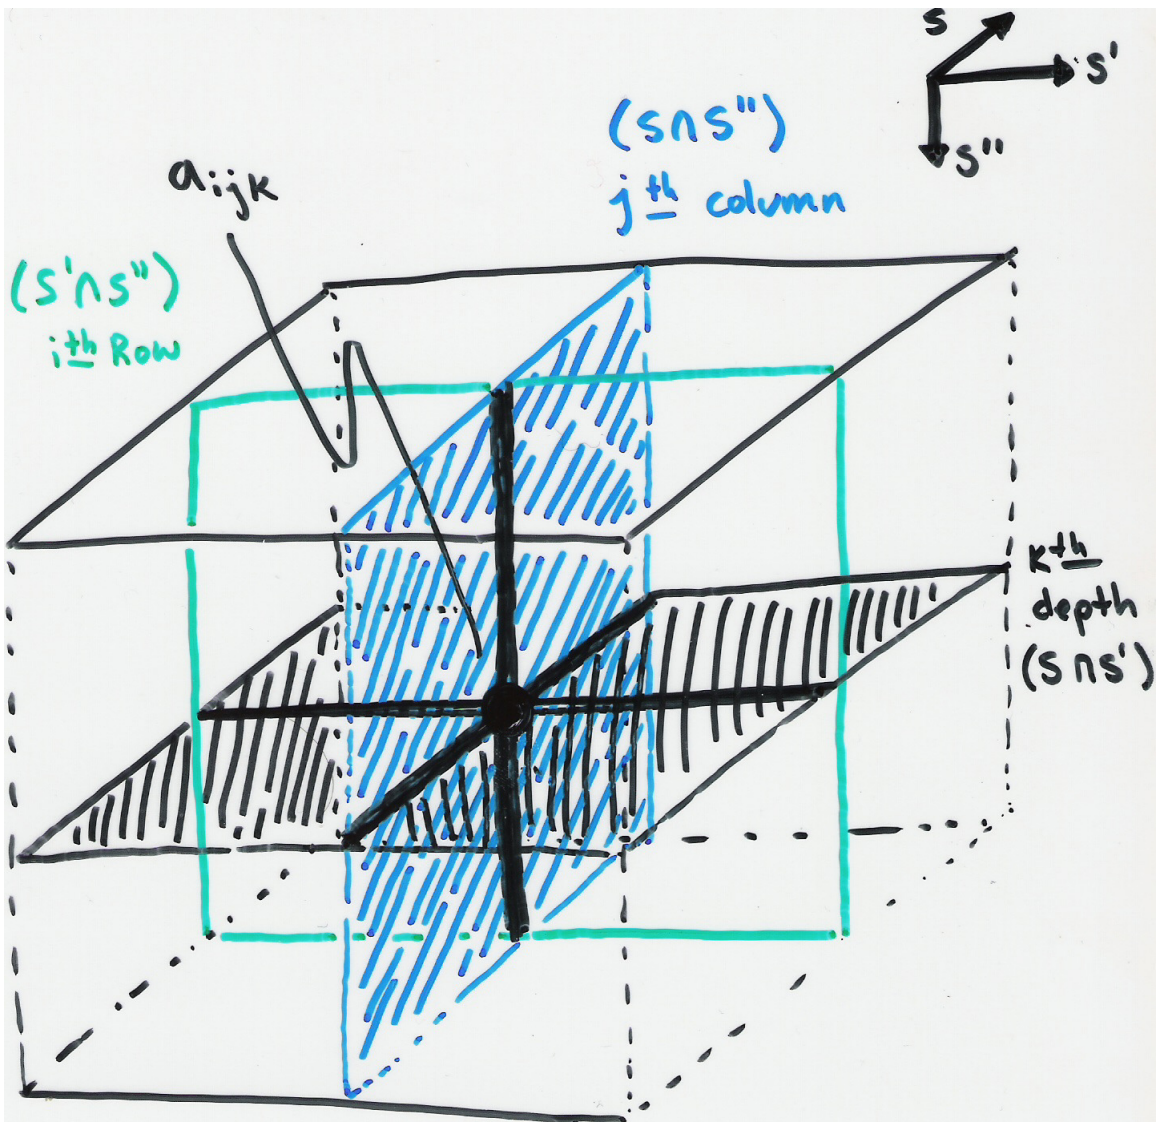 s
s'
s''
(s∩s'')
jth column
aijk
(s'∩s'')
ith Row
kth
depth
(s∩s')